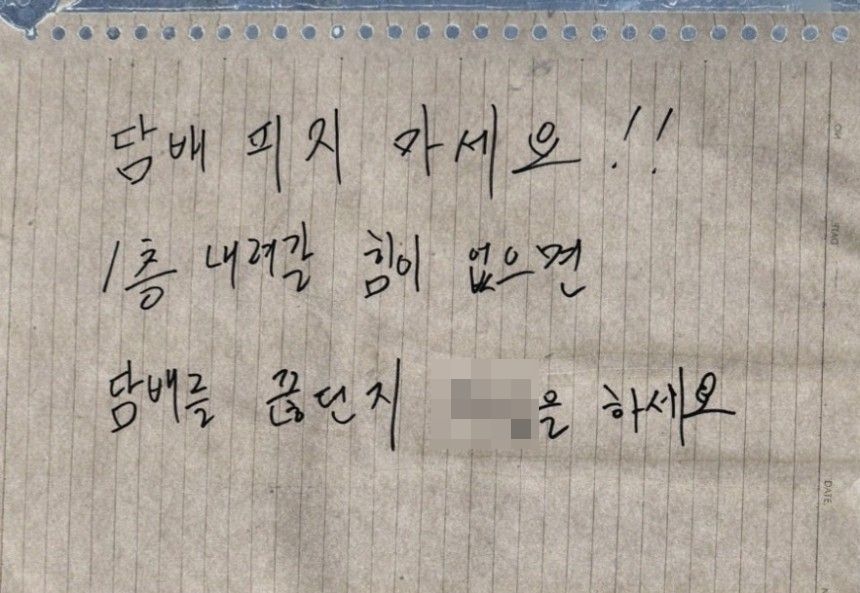 담배 피지 마세요!!
1층 내려갈 힘이 없으면
담배를 끊던지 을 하세요
DATE